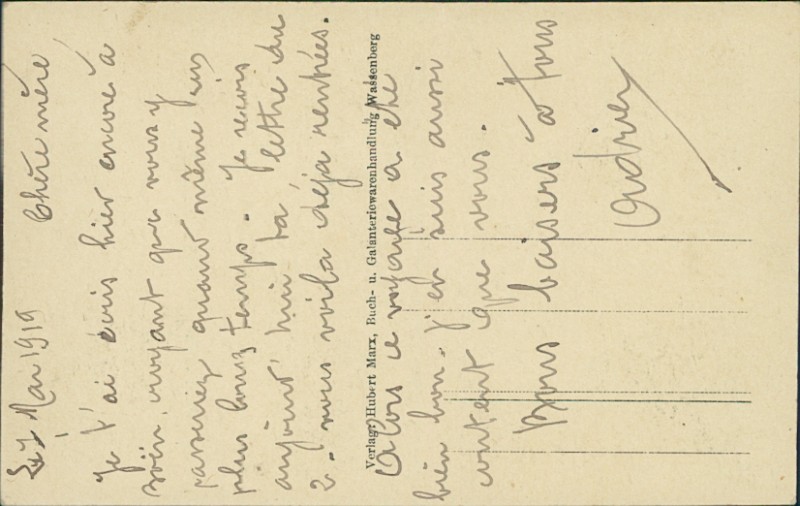 Le 7 Mai 1919 Chère mère
Je t'ai écris hier encore à
croyant que vous y
passeriez quand même un
plus long temps. Je reçois
aujourd'hui ta lettre du
2. vous voila déja rentrées.
Verlag: Hubert Marx, Buch- u. Galanteriewarenhandlung Wassenberg
Alors ce voyage a été
bien bon. j'en suis aussi
content que vous.
Bons baisers à tous